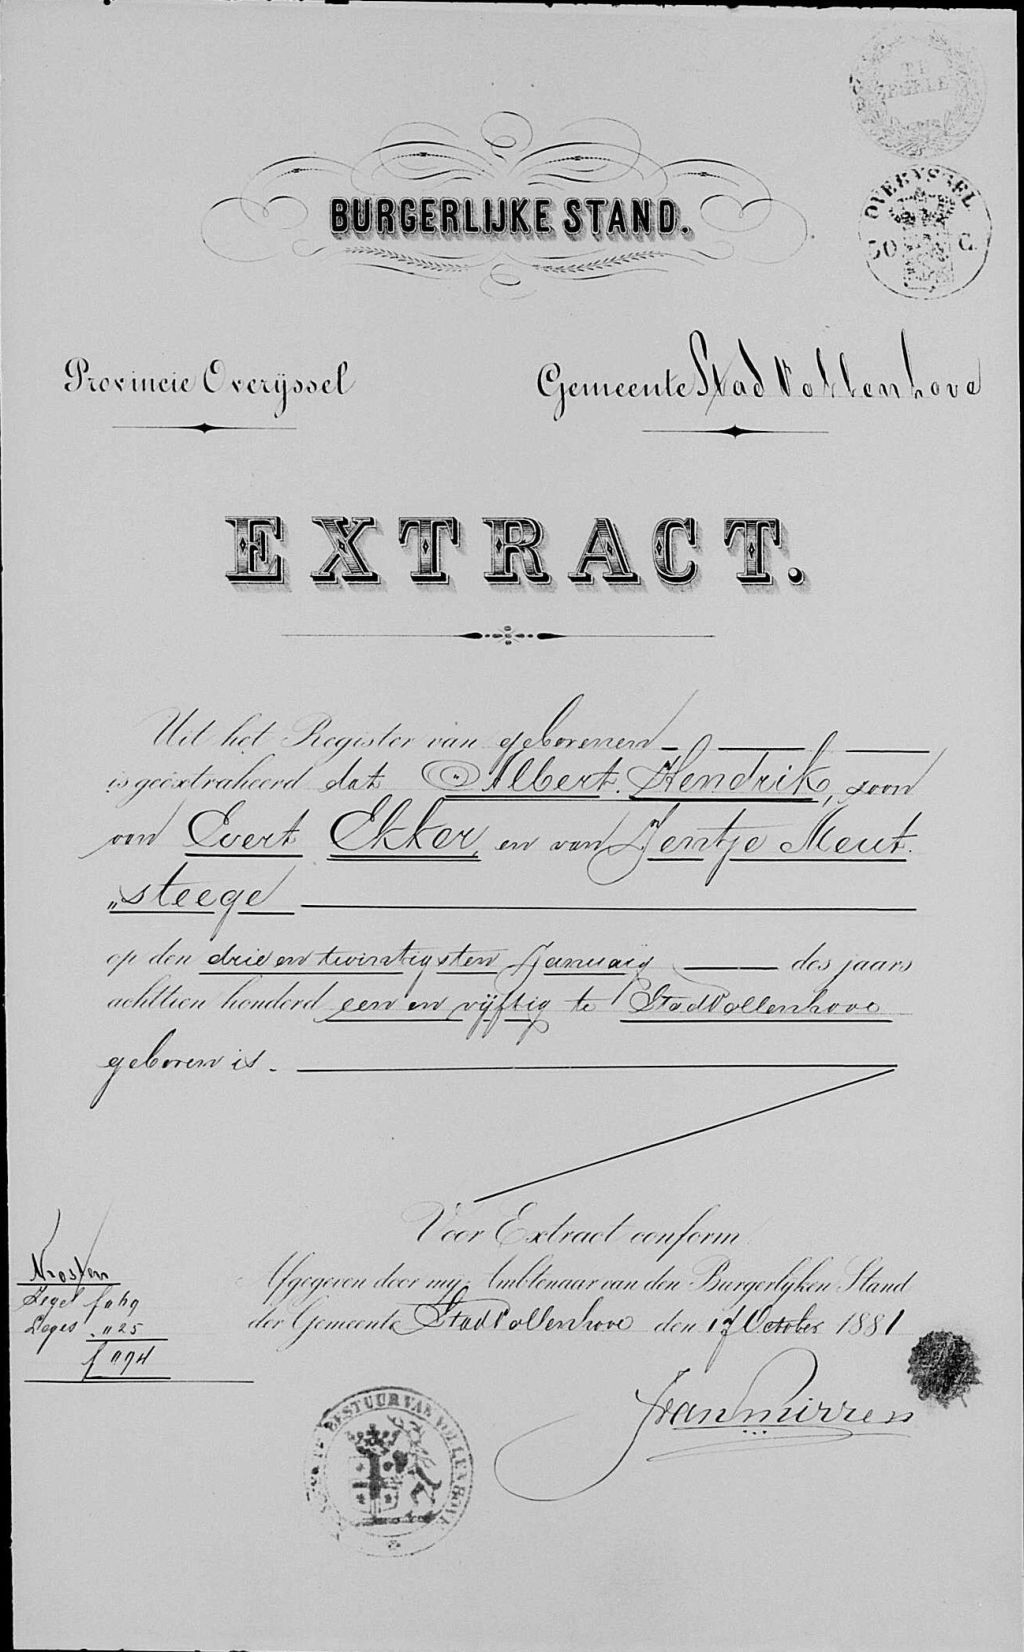 OVERYSSEL
50 C.
BURGERLIJKE STAND.
Provincie Overijssel
Gemeente Stad Vollenhove
EXTRACT.
Uit het Register van geborenen
is geëxtraheerd dat Albert Hendrik, zoon
van Evert Ekker, en van Jentje Meut
„steege
op den drie en twintigsten Januarij des jaars
achttien honderd een en vijftig te StadVollenhove
geboren is.
Voor Extract conform
Afgegeven door mij Ambtenaar van den Burgerlyken Stand
der Gemeente StadVollenhove den 17 October 1881
Kosten
Zegel f 0.69
Leges . " 25
f " 94
BESTUUR VAN VOLLENHOVE